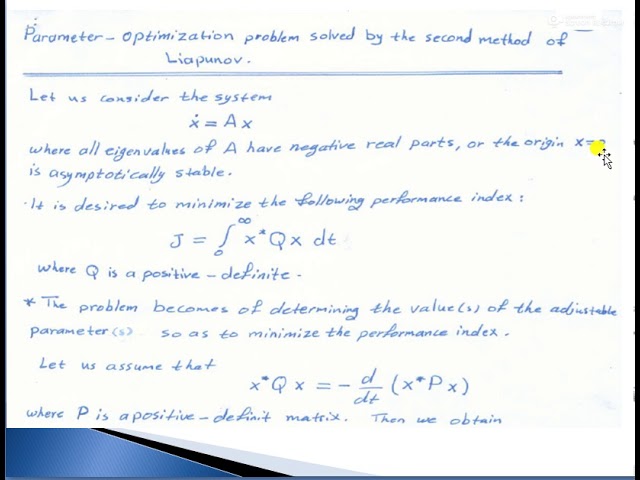 Parameter - optimization problem solved by the second method of
Liapunov.
Let us consider the system
ẋ = A x
where all eigenvalues of A have negative real parts, or the origin x=
is asymptotically stable.
It is desired to minimize the following performance index:
J = ∫₀^∞ x* Q x dt
where Q is a positive - definite.
* The problem becomes of determining the value(s) of the adjustable
parameter(s) so as to minimize the performance index.
Let us assume that
x* Q x = - d/dt (x* P x)
where P is a positive - definit matrix. Then we obtain